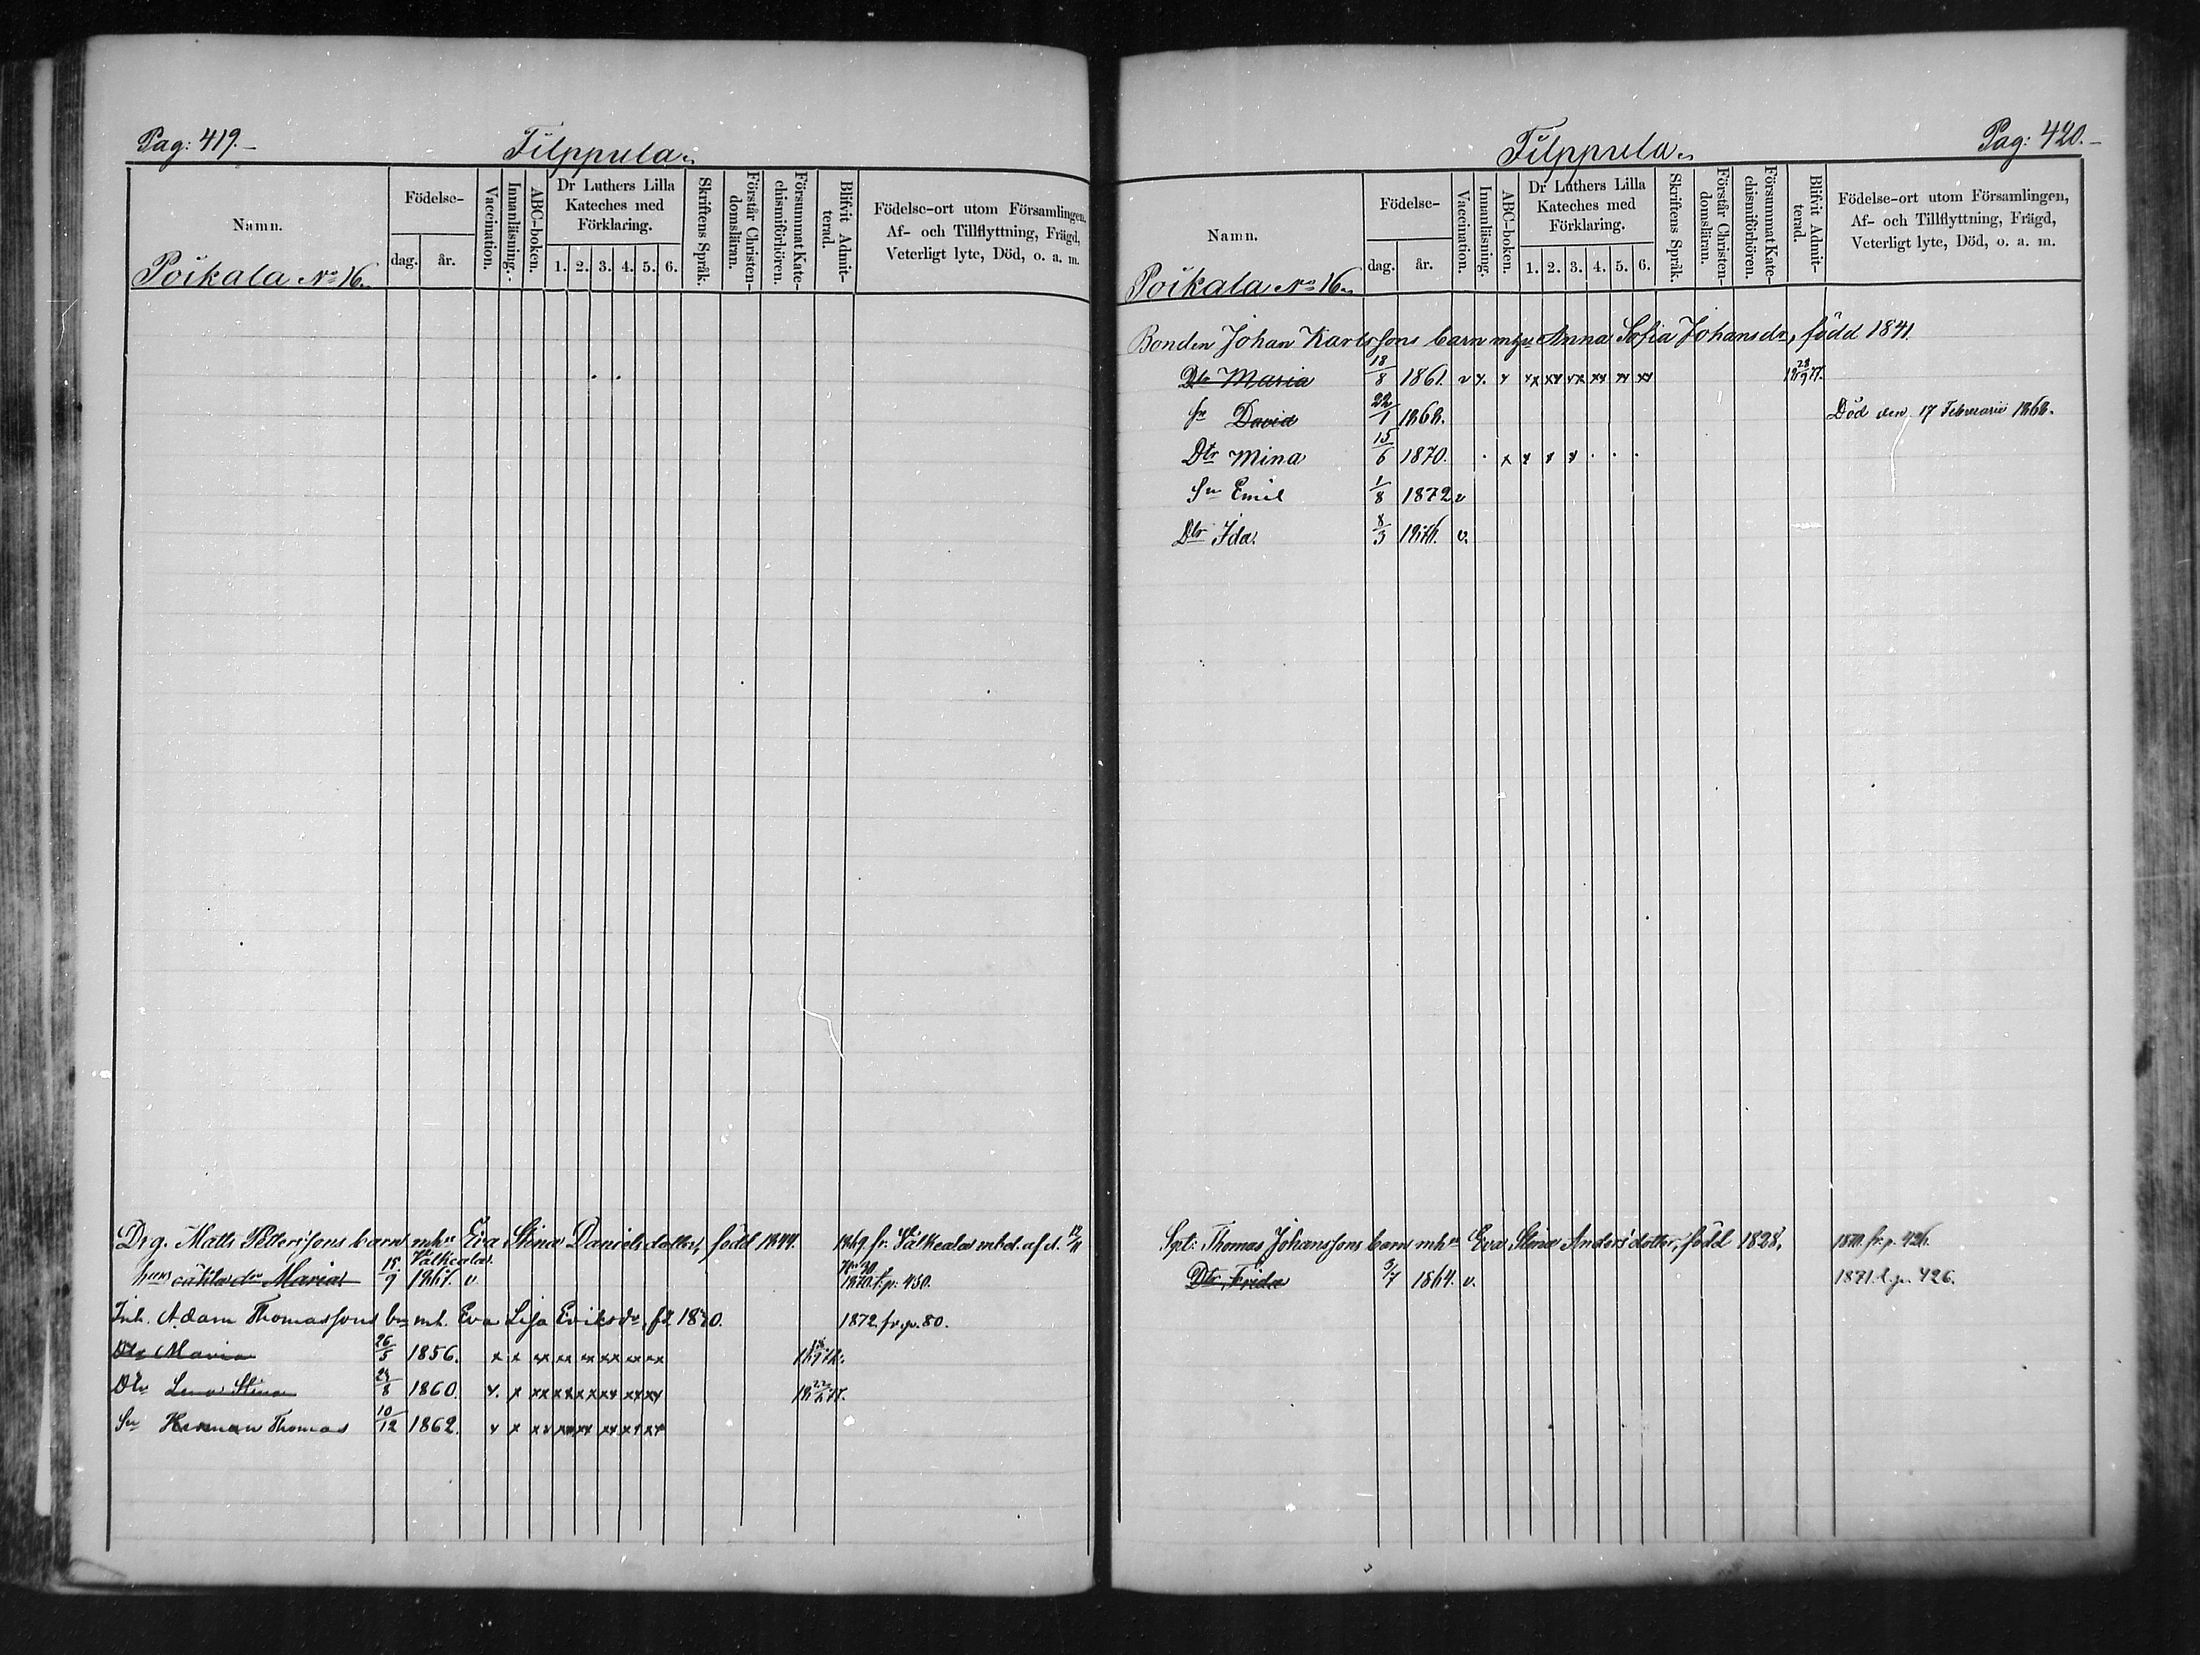 Pag: 419.
Filppula.
Namn.
Födelse-
dag. år.
Vaccination.
Innanläsning.
ABC-boken.
Dr Luthers Lilla
Kateches med
Förklaring.
1. 2. 3. 4. 5. 6.
Skriftens Språk.
Förstår Christen-
domsläran.
Försummat Kate-
chismiförhören.
Blifvit Admit-
terad.
Födelse-ort utom Församlingen,
Af- och Tillflyttning, Frägd,
Veterligt lyte, Död, o. a. m.
Poikala No 16.
Drg. Matts Pederssons barn mhu Eva Stina Danielsdotter, född 1844. 1869 fr. Välkeala
Välkeala
hans äkta dr Maria 18/9 1867. v 1870. p. 450.
Inh. Adam Thomassons bn mh. Eva Lisa Eriksdr, fd 1820. 1872 fr. p. 80.
Dtr Maria 26/5 1856. x x xx xx xx xx xx xx
Dtr Lena Stina 24/8 1860. x x xx xx xx xx xx xx
Sn Herman Thomas 10/12 1862. x x xx xx xx xx xx xx
Filppula.
Pag: 420.
Namn.
Födelse-
dag. år.
Vaccination.
Innanläsning.
ABC-boken.
Dr Luthers Lilla
Kateches med
Förklaring.
1. 2. 3. 4. 5. 6.
Skriftens Språk.
Förstår Christen-
domsläran.
Försummat Kate-
chismiförhören.
Blifvit Admit-
terad.
Födelse-ort utom Församlingen,
Af- och Tillflyttning, Frägd,
Veterligt lyte, Död, o. a. m.
Poikala No 16.
Bonden Johan Karlssons barn mhu Anna Sofia Johansdr, född 1841.
Dtr Maria 18/8 1861. v x. x xx xx xx xx xx xx 18 23/9 77.
Sn David 22/1 1868. Död den 17 Februarii 1868.
Dtr Mina 15/6 1870. . x x x x . . .
Sn Emil 1/8 1872 v
Dtr Ida. 8/3 1876. v.
Spl: Thomas Johanssons barn mhu Eva Stina Andersdotter, född 1828. 1870. fr. p. 426.
Dtr Frida 3/7 1864. v. 1871. t. p. 426.